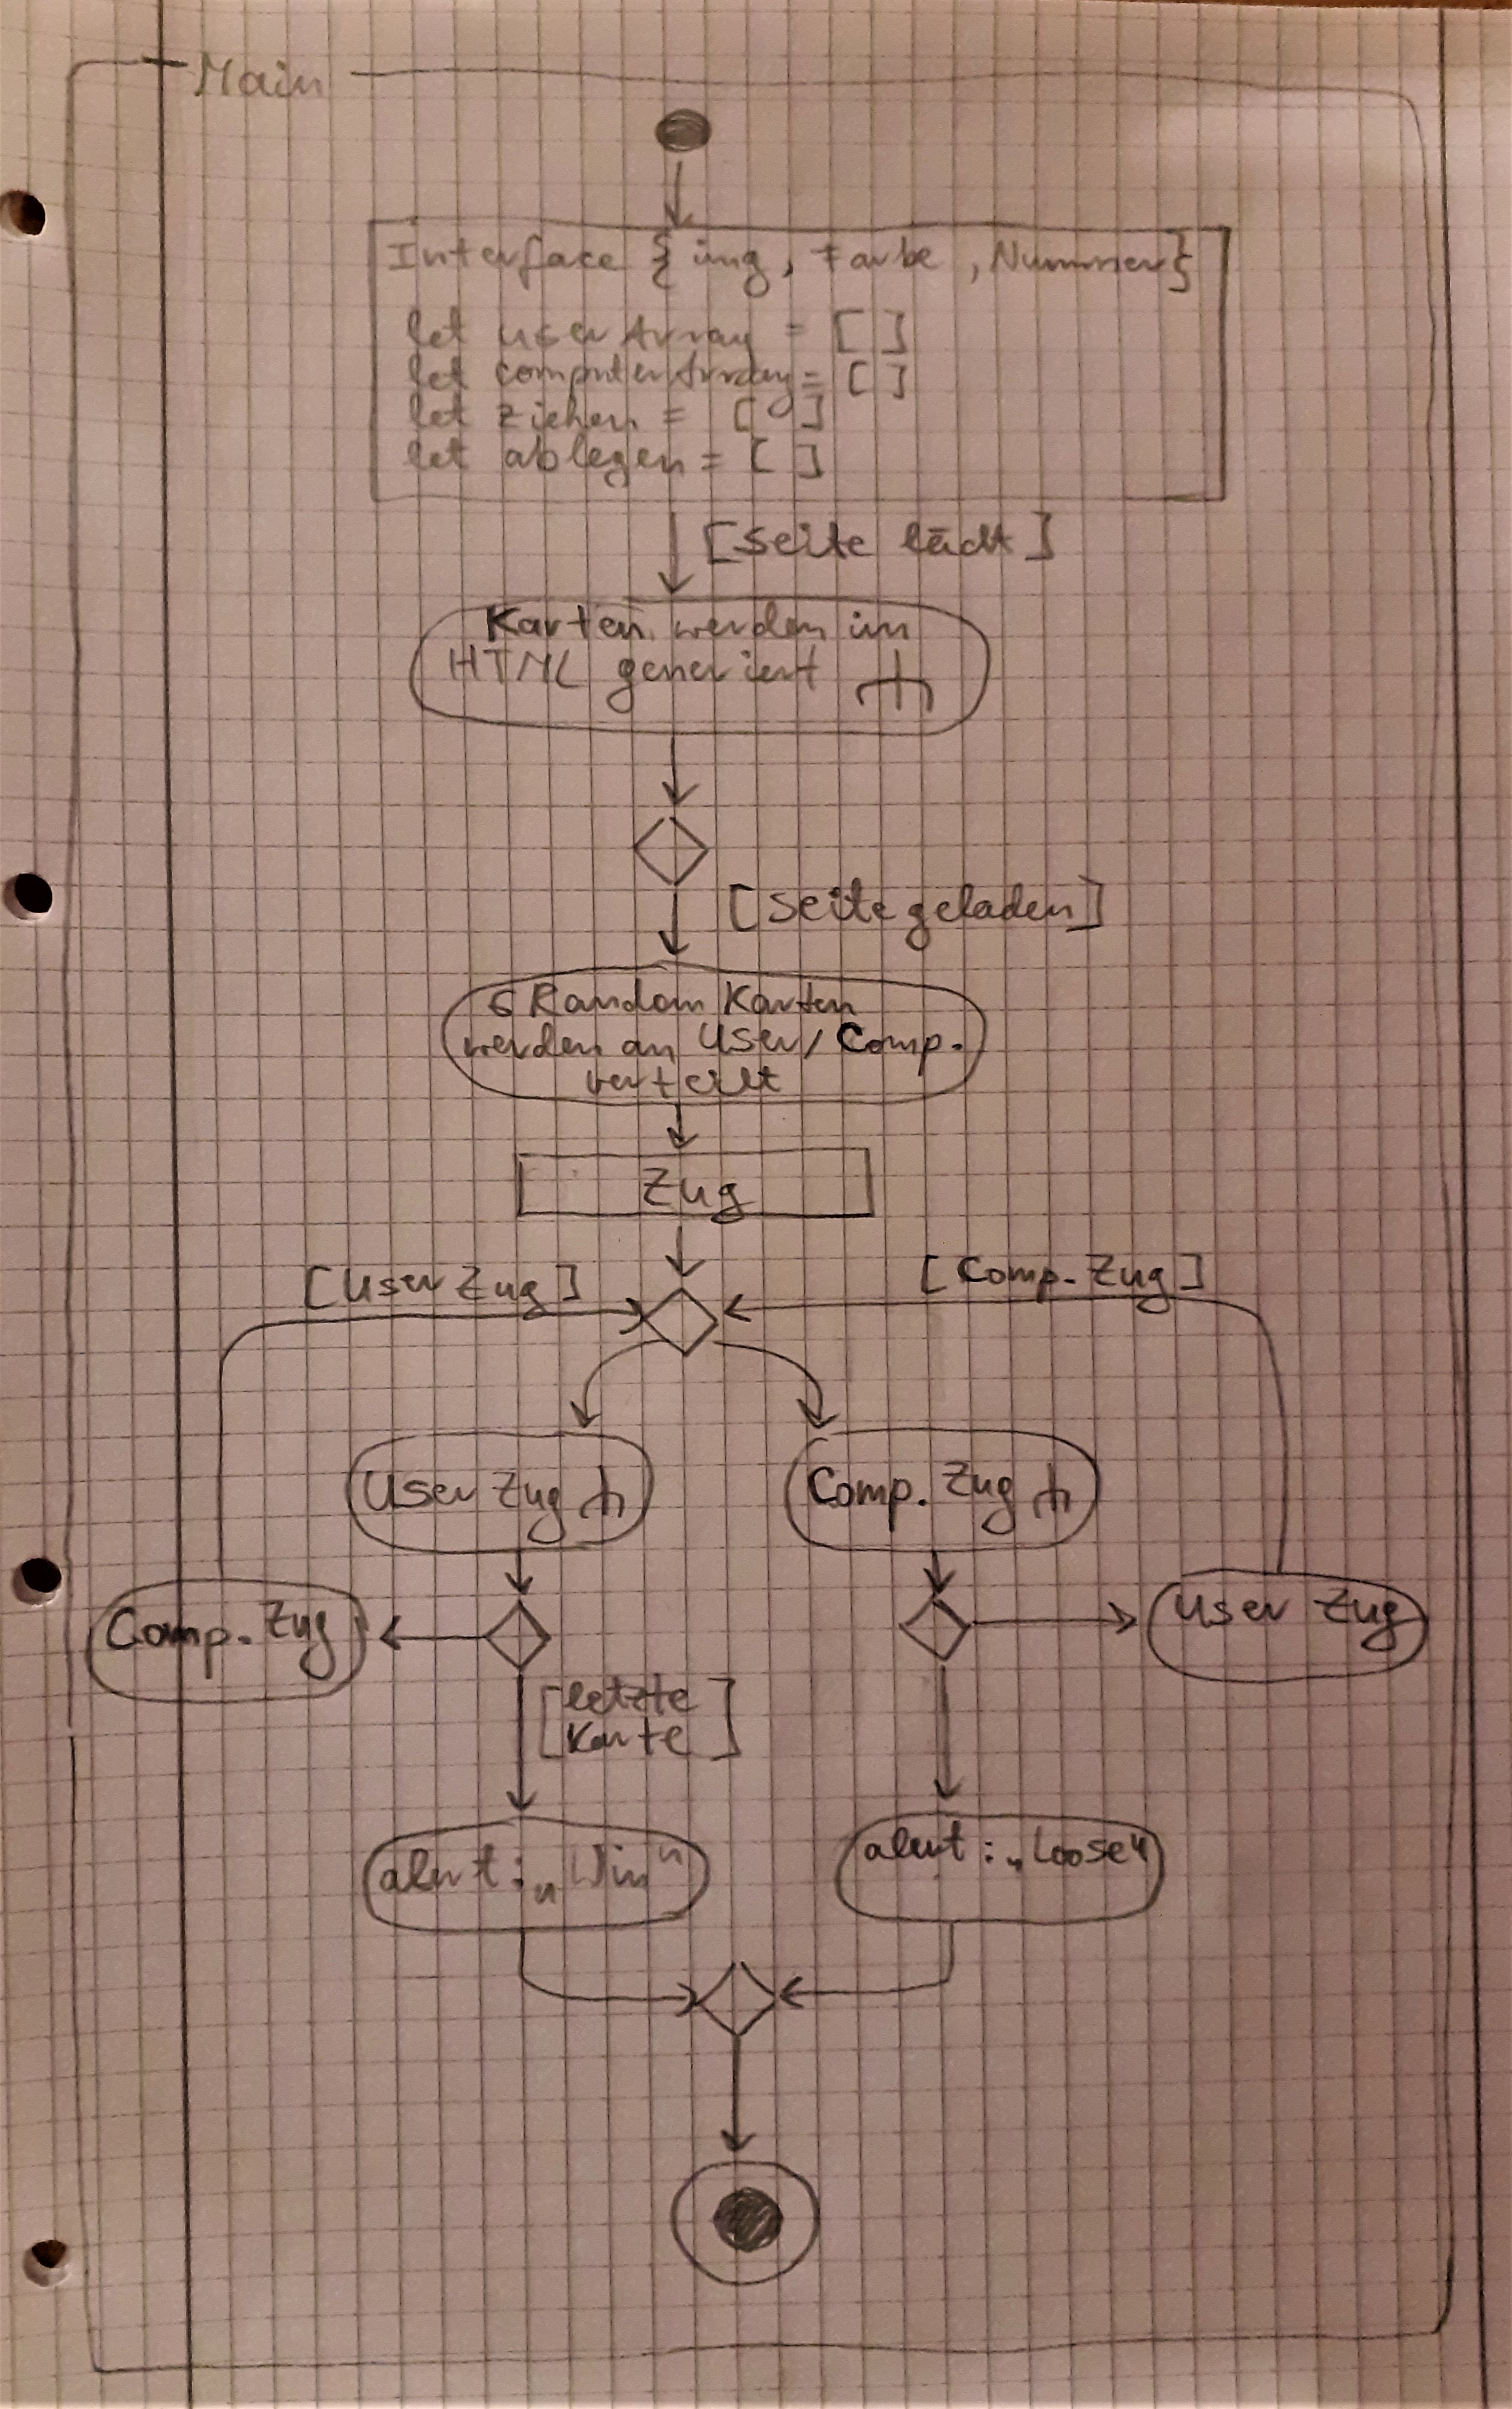 Main
Interface { img, Farbe, Nummer}
let userArray = [ ]
let computerArray = [ ]
let ziehen = [ ]
let ablegen = [ ]
[Seite lädt]
Karten werden im
HTML generiert
[Seite geladen]
6 Random Karten
werden an User/Comp.
verteilt
Zug
[User Zug]
[Comp. Zug]
User Zug
Comp. Zug
Comp. Zug
User Zug
[letzte
Karte]
alert: „Win"
alert: „Loose"